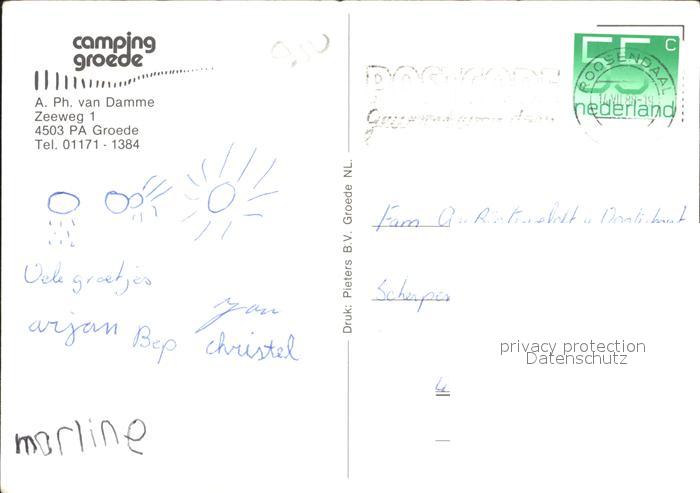 camping
groede
A. Ph. van Damme
Zeeweg 1
4503 PA Groede
Tel. 01171 - 1384
Vele groetjes
Jan
arjan Bep christel
marline
Druk: Pieters B.V. Groede NL.
POSTCODE
55 C
nederland
ROOSENDAAL
Fam
privacy protection
Datenschutz